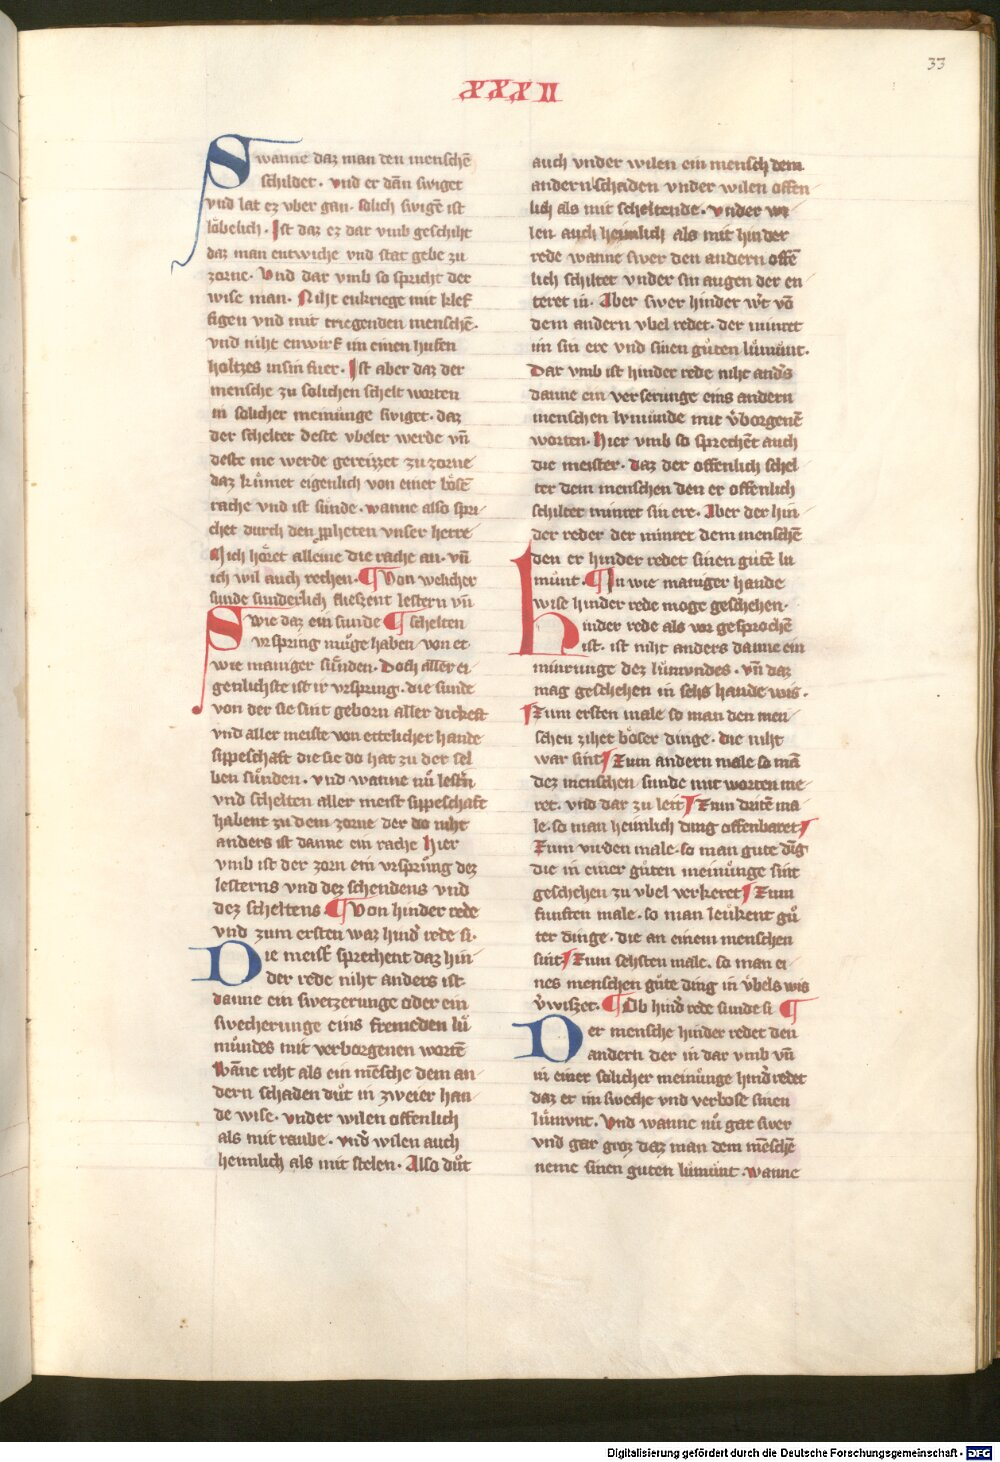 33
XXXII
Swanne daz man den mensche̅
schildet. vnd er da̅n swiget
vnd lat ez vber gan. solich swige̅ ist
lobelich. Ist daz ez dar vmb geschiht
daz man entwiche vnd stat gebe zu
zorne. Vnd dar vmb so spricht der
wise man. Niht enkriege mit klef
figen vnd mit triegenden mensche̅.
vnd niht enwirf im einen hufen
holtzes in sin fiver. Ist aber daz der
mensche zu solichen schelt worten
in solicher meinu̅nge swiget. daz
der schelter deste vbeler werde vn̅
deste me werde gereizzet zu zorne
daz kůmet eigenlich von einer bőse̅
rache vnd ist sunde. wanne also spri
chet durch den ppheten vnser herre
Mich hőret alleine die rache an. vn̅
ich wil auch rechen. ¶ Von welicher
sunde sunderlich fliezent lestern vn̅
Swie daz ein sunde ¶ schelten
vrspring můge haben von et
wie maniger sůnden. Doch aller ei
genlichste ist ir vrsprung. die sunde
von der sie sint geborn aller dickest
vnd aller meiste von ettelicher hande
sippeschaft die sie do hat zu der sel
ben sůnden. vnd wanne nů lest̅n
vnd schelten aller meist sippeschaft
habent zu dem zorne der do niht
anders ist danne ein rache Hier
vmb ist der zorn ein vrsprůng dez
lesterns vnd dez schendens vnd
dez scheltens. ¶ Von hinder rede
vnd zum ersten waz hind̅ rede si.
Die meist̅ sprechent daz hin
der rede niht anders ist
danne ein swetzerunge oder ein
swecherunge eins fremeden lů
můndes mit verborgenen worte̅
Wa̅ne reht als ein me̅sche dem an
dern schaden důt in zweier han
de wise. vnder wilen offenlich
als mit raube. vnd̅ wilen auch
heimlich als mit stelen. Also důt
auch vnder wilen ein mensch dem
andern schaden vnder wilen offen
lich als mit scheltende. vnder wi
len auch heimlich als mit hinder
rede wanne swer den andern offe̅
lich schiltet vnder sin augen der en
teret in. Aber swer hinder w̅t vo̅
dem andern vbel redet. der minret
im sin ere vnd sinen gůten lůmůnt.
Dar vmb ist hinder rede niht and̅s
danne ein verserunge eins andern
menschen lvmůnde mit v̅borgene̅
worten. Hier vmb so sprechent auch
die meister. daz der offenlich schel
ter dem menschen den er offenlich
schiltet minret sin ere. Aber der hin
der reder der minret dem mensche̅
den er hinder redet sinen gute̅ lu
můnt. ¶ In wie maniger hande
wise hinder rede moge geschehen.
Hinder rede als vor gesproche̅
ist. ist niht anders danne ein
minrunge dez lůmvndes. vn̅ daz
mag geschehen in sehs hande wis.
¶ Zum ersten male so man den men
schen zihet bőser dinge. die niht
war sint ¶ Zum andern male so ma̅
dez menschen sunde mit worten me
ret. vnd dar zu leit ¶ Zum drite̅ ma
le. so man heimlich ding offenbaret ¶
Zum virden male. so man gute di̅g
die in einer gůten meinůnge sint
geschehen zu vbel verkeret ¶ Zum
funften male. so man leůkent gů
ter dinge. die an einem menschen
sint ¶ Zum sehsten male. so man ei
nes menschen gůte ding in v̊bels wis
v̅wiszet. ¶ Ob hind̅ rede sunde si ¶
Der mensche hinder redet den
andern der in dar vmb vn̅
in einer solicher meinůnge hind̅ redet
daz er im sweche vnd verbőse sinen
lůmvnt. Vnd wanne nů gar swer
vnd gar groz daz man dem me̅sche̅
neme sinen guten lůmůnt. wanne
Digitalisierung gefördert durch die Deutsche Forschungsgemeinschaft - DFG